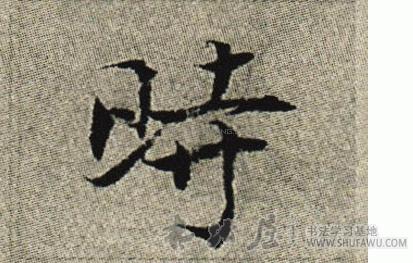 時
书法学习基地
WWW.SHUFAWU.COM